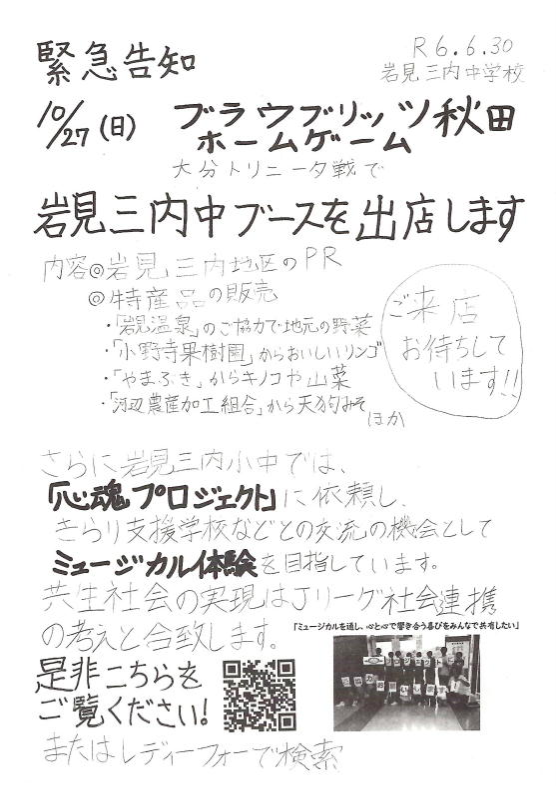 緊急告知
R6.6.30
岩見三内中学校
10/27(日) ブラウブリッツ秋田
ホームゲーム
大分トリニータ戦で
岩見三内中ブースを出店します
内容◎岩見三内地区のPR
◎特産品の販売
・「岩見温泉」のご協力で地元の野菜
・「小野寺果樹園」からおいしいリンゴ
・「やまふき」からキノコや山菜
・「河辺農産加工組合」から天狗みそ
ほか
ご来店
お待ちして
います!!
さらに岩見三内小中では、
「心魂プロジェクト」に依頼し、
きらり支援学校などとの交流の機会として
ミュージカル体験を目指しています。
共生社会の実現はJリーグ社会連携
の考えと合致します。
「ミュージカルを通し、心と心で響き合う喜びをみんなで共有したい」
是非こちらを
ご覧ください!
またはレディーフォーで検索